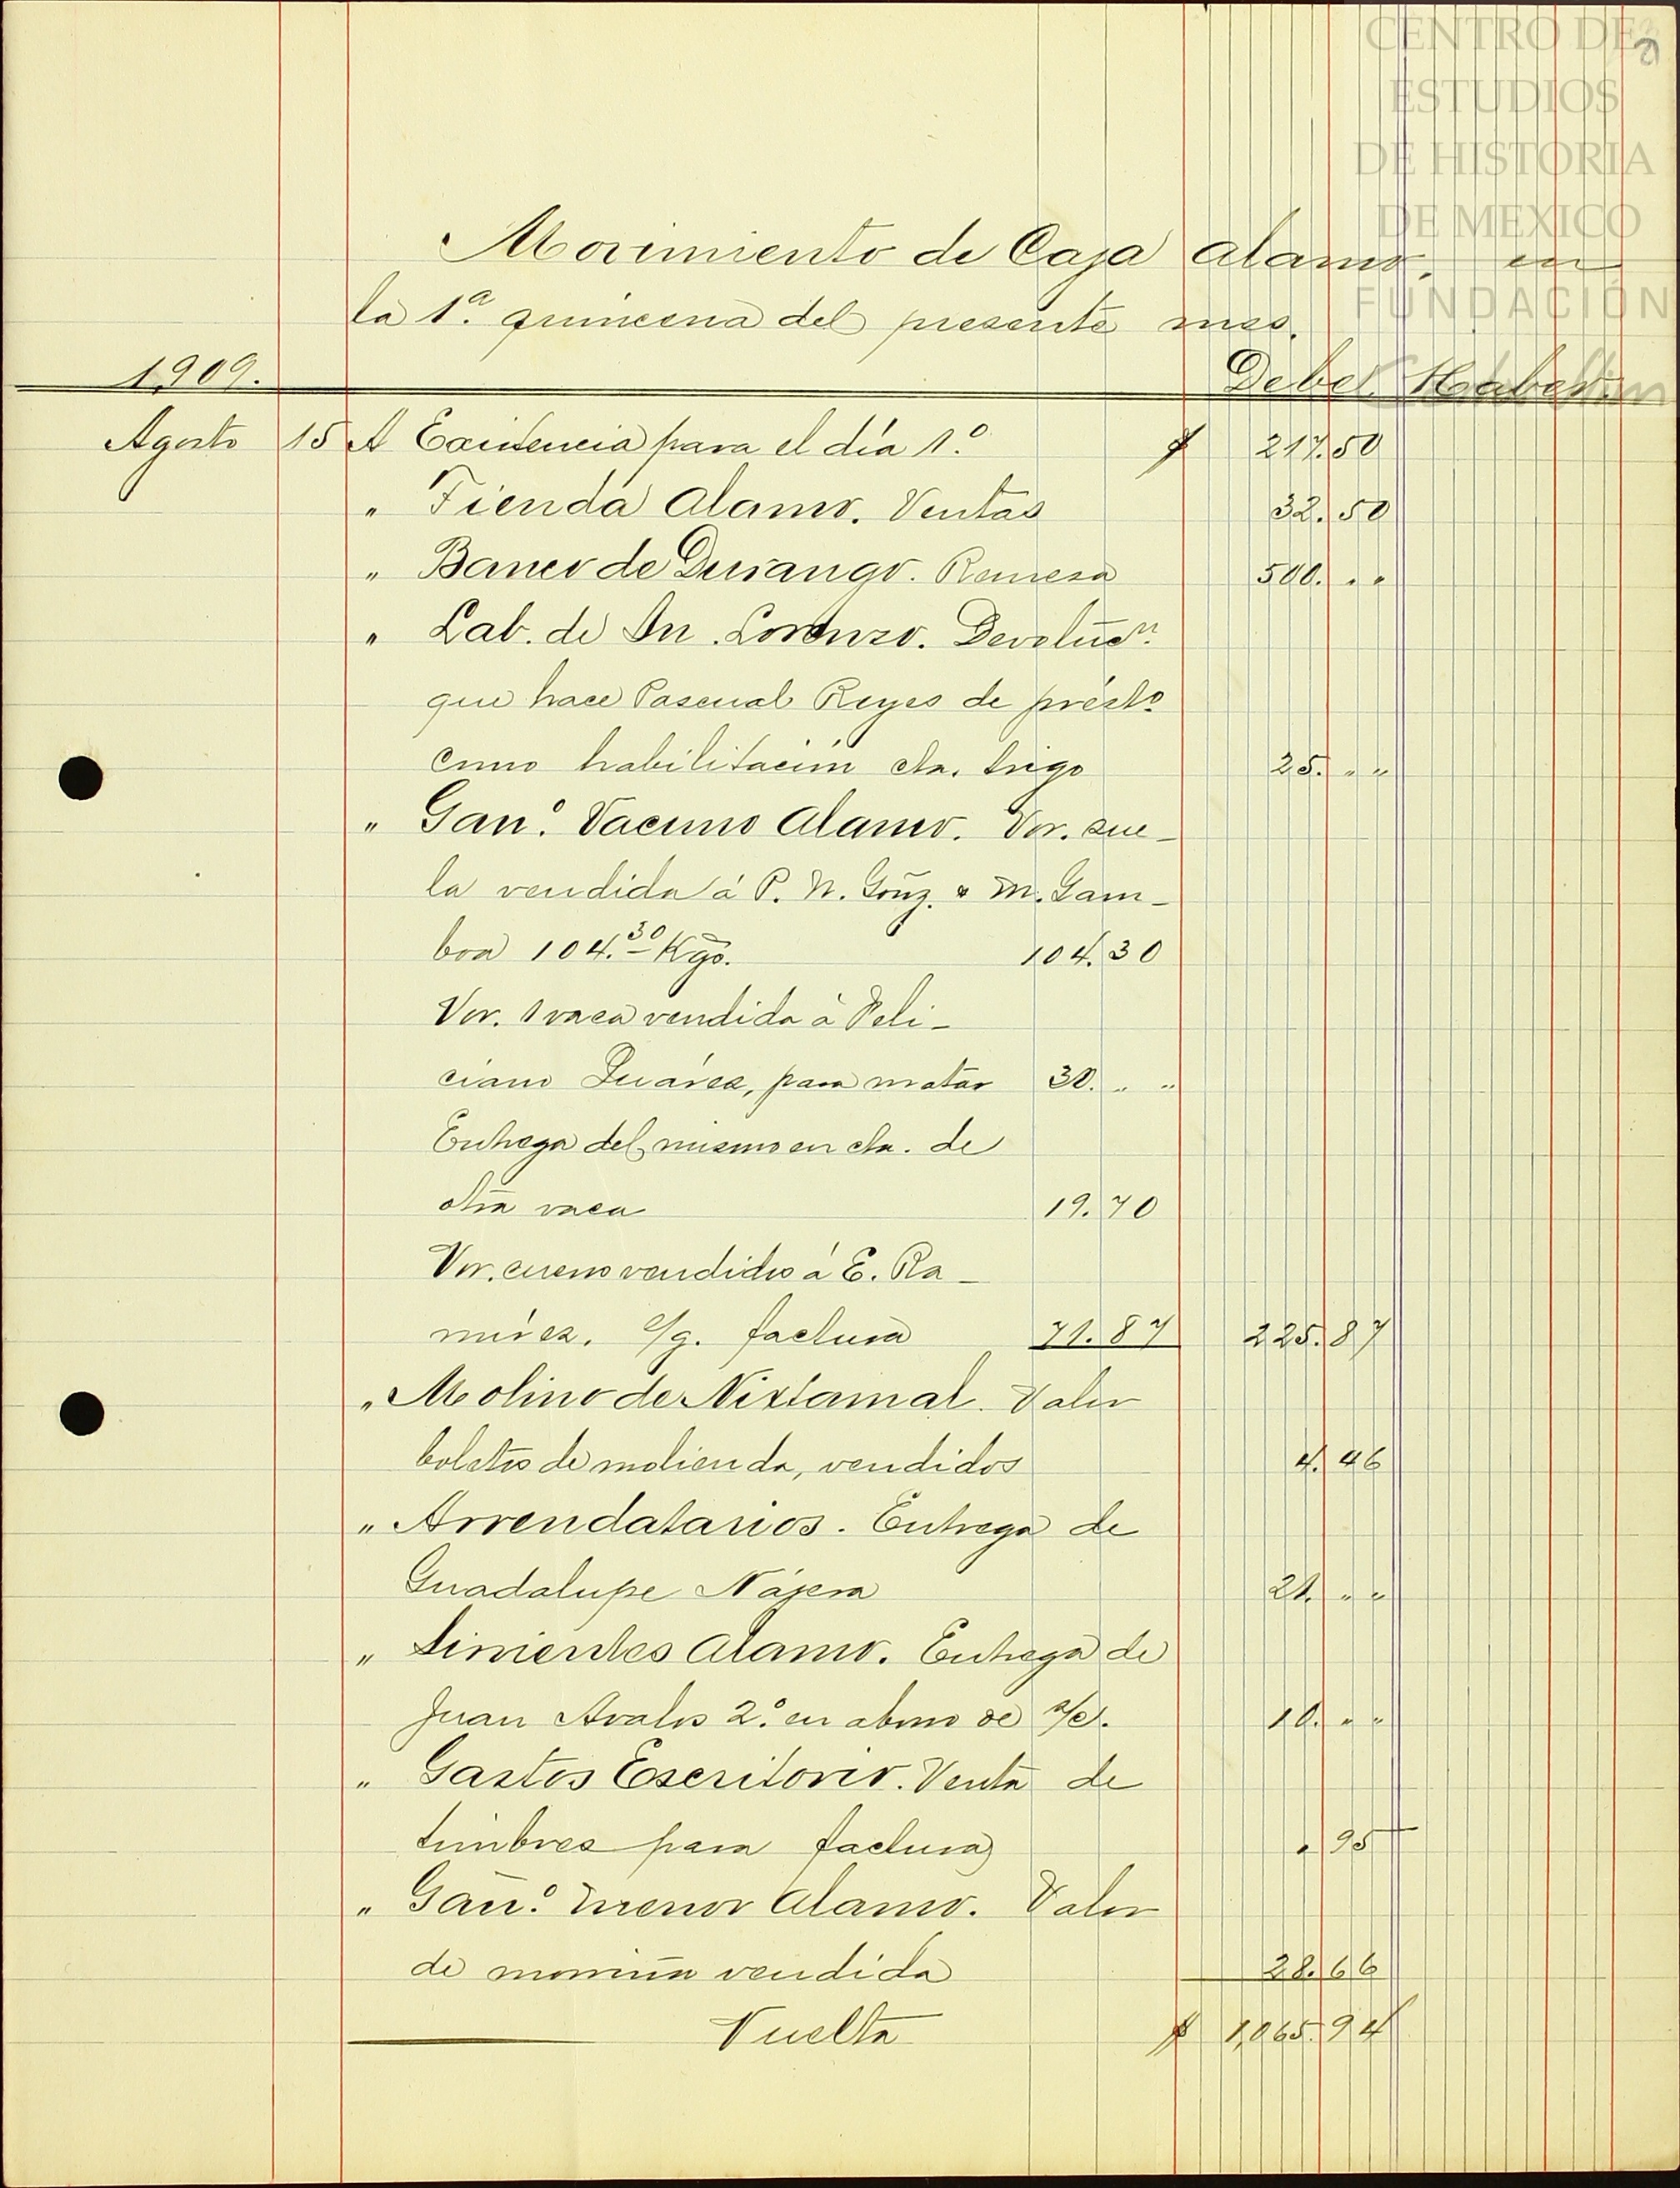 CENTRO DE
ESTUDIOS
DE HISTORIA
DE MEXICO
FUNDACIÓN
Movimiento de Caja Alamo, en
la 1ª quincena del presente mes.
1909. Debe. Haber.
Agosto 15 A Existencia para el día 1º $ 217.50
" Tienda Alamo. Ventas 32.50
" Banco de Durango. Remesa 500. " "
" Lab. de Sn. Lorenzo. Devolucn.
que hace Pascual Reyes de présto
como habilitación cta. trigo 25. " "
" Gano. Vacuno Alamo. Vor. sue-
la vendida á P. N. Gonz. & M. Gam-
boa 104.30 Kgs. 104.30
Vor. 1 vaca vendida á Feli-
ciano Juárez, para matar 30. " "
Entrega del mismo en cta. de
otra vaca 19.70
Vor. cueros vendidos á E. Ra-
mírez, s/g. factura 71.87 225.87
" Molino de Nixtamal. Valor
boletos de molienda, vendidos 4.46
" Arrendatarios. Entrega de
Guadalupe Nájera 21. " "
" Simientes Alamo. Entrega de
Juan Avalos 2º en abono de s/c. 10. " "
" Gastos Escritorio. Venta de
timbres para factura . 95
" Gano. menor Alamo. Valor
de vendida 28.66
Vuelta $ 1,065.94